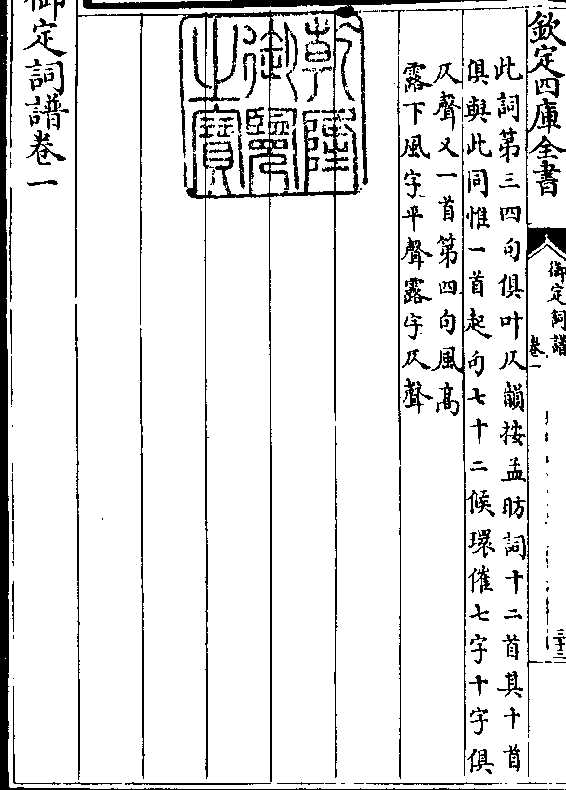 欽定四庫全書
御定詞譜
卷一
三十二
此詞第三四句俱叶仄韻按孟昉詞十二首其十首
俱與此同惟一首起句七十二候環催七字十字俱
仄聲又一首第四句風高
露下風字平聲露字仄聲
乾隆
御覽
之寶
御定詞譜卷一